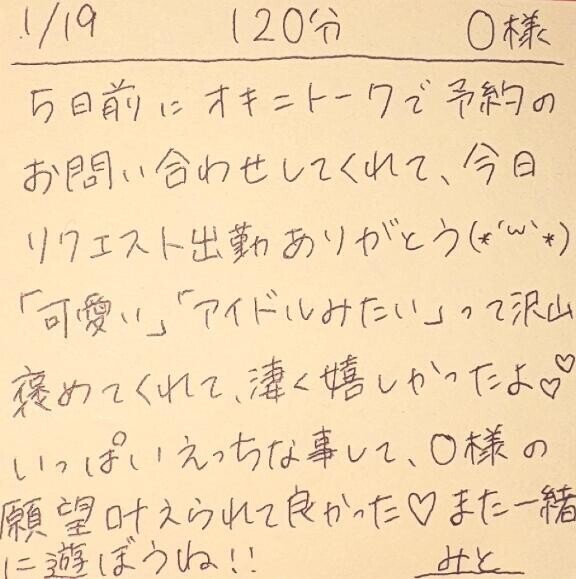 1/19 120分 O様
5日前にオキニトークで予約の
お問い合わせしてくれて、今日
リクエスト出勤ありがとう(*´ω`*)
「可愛い」「アイドルみたい」って沢山
褒めてくれて、凄く嬉しかったよ♡♡
いっぱいえっちな事して、O様の
願望叶えられて良かった♡また一緒
に遊ぼうね!!
みと